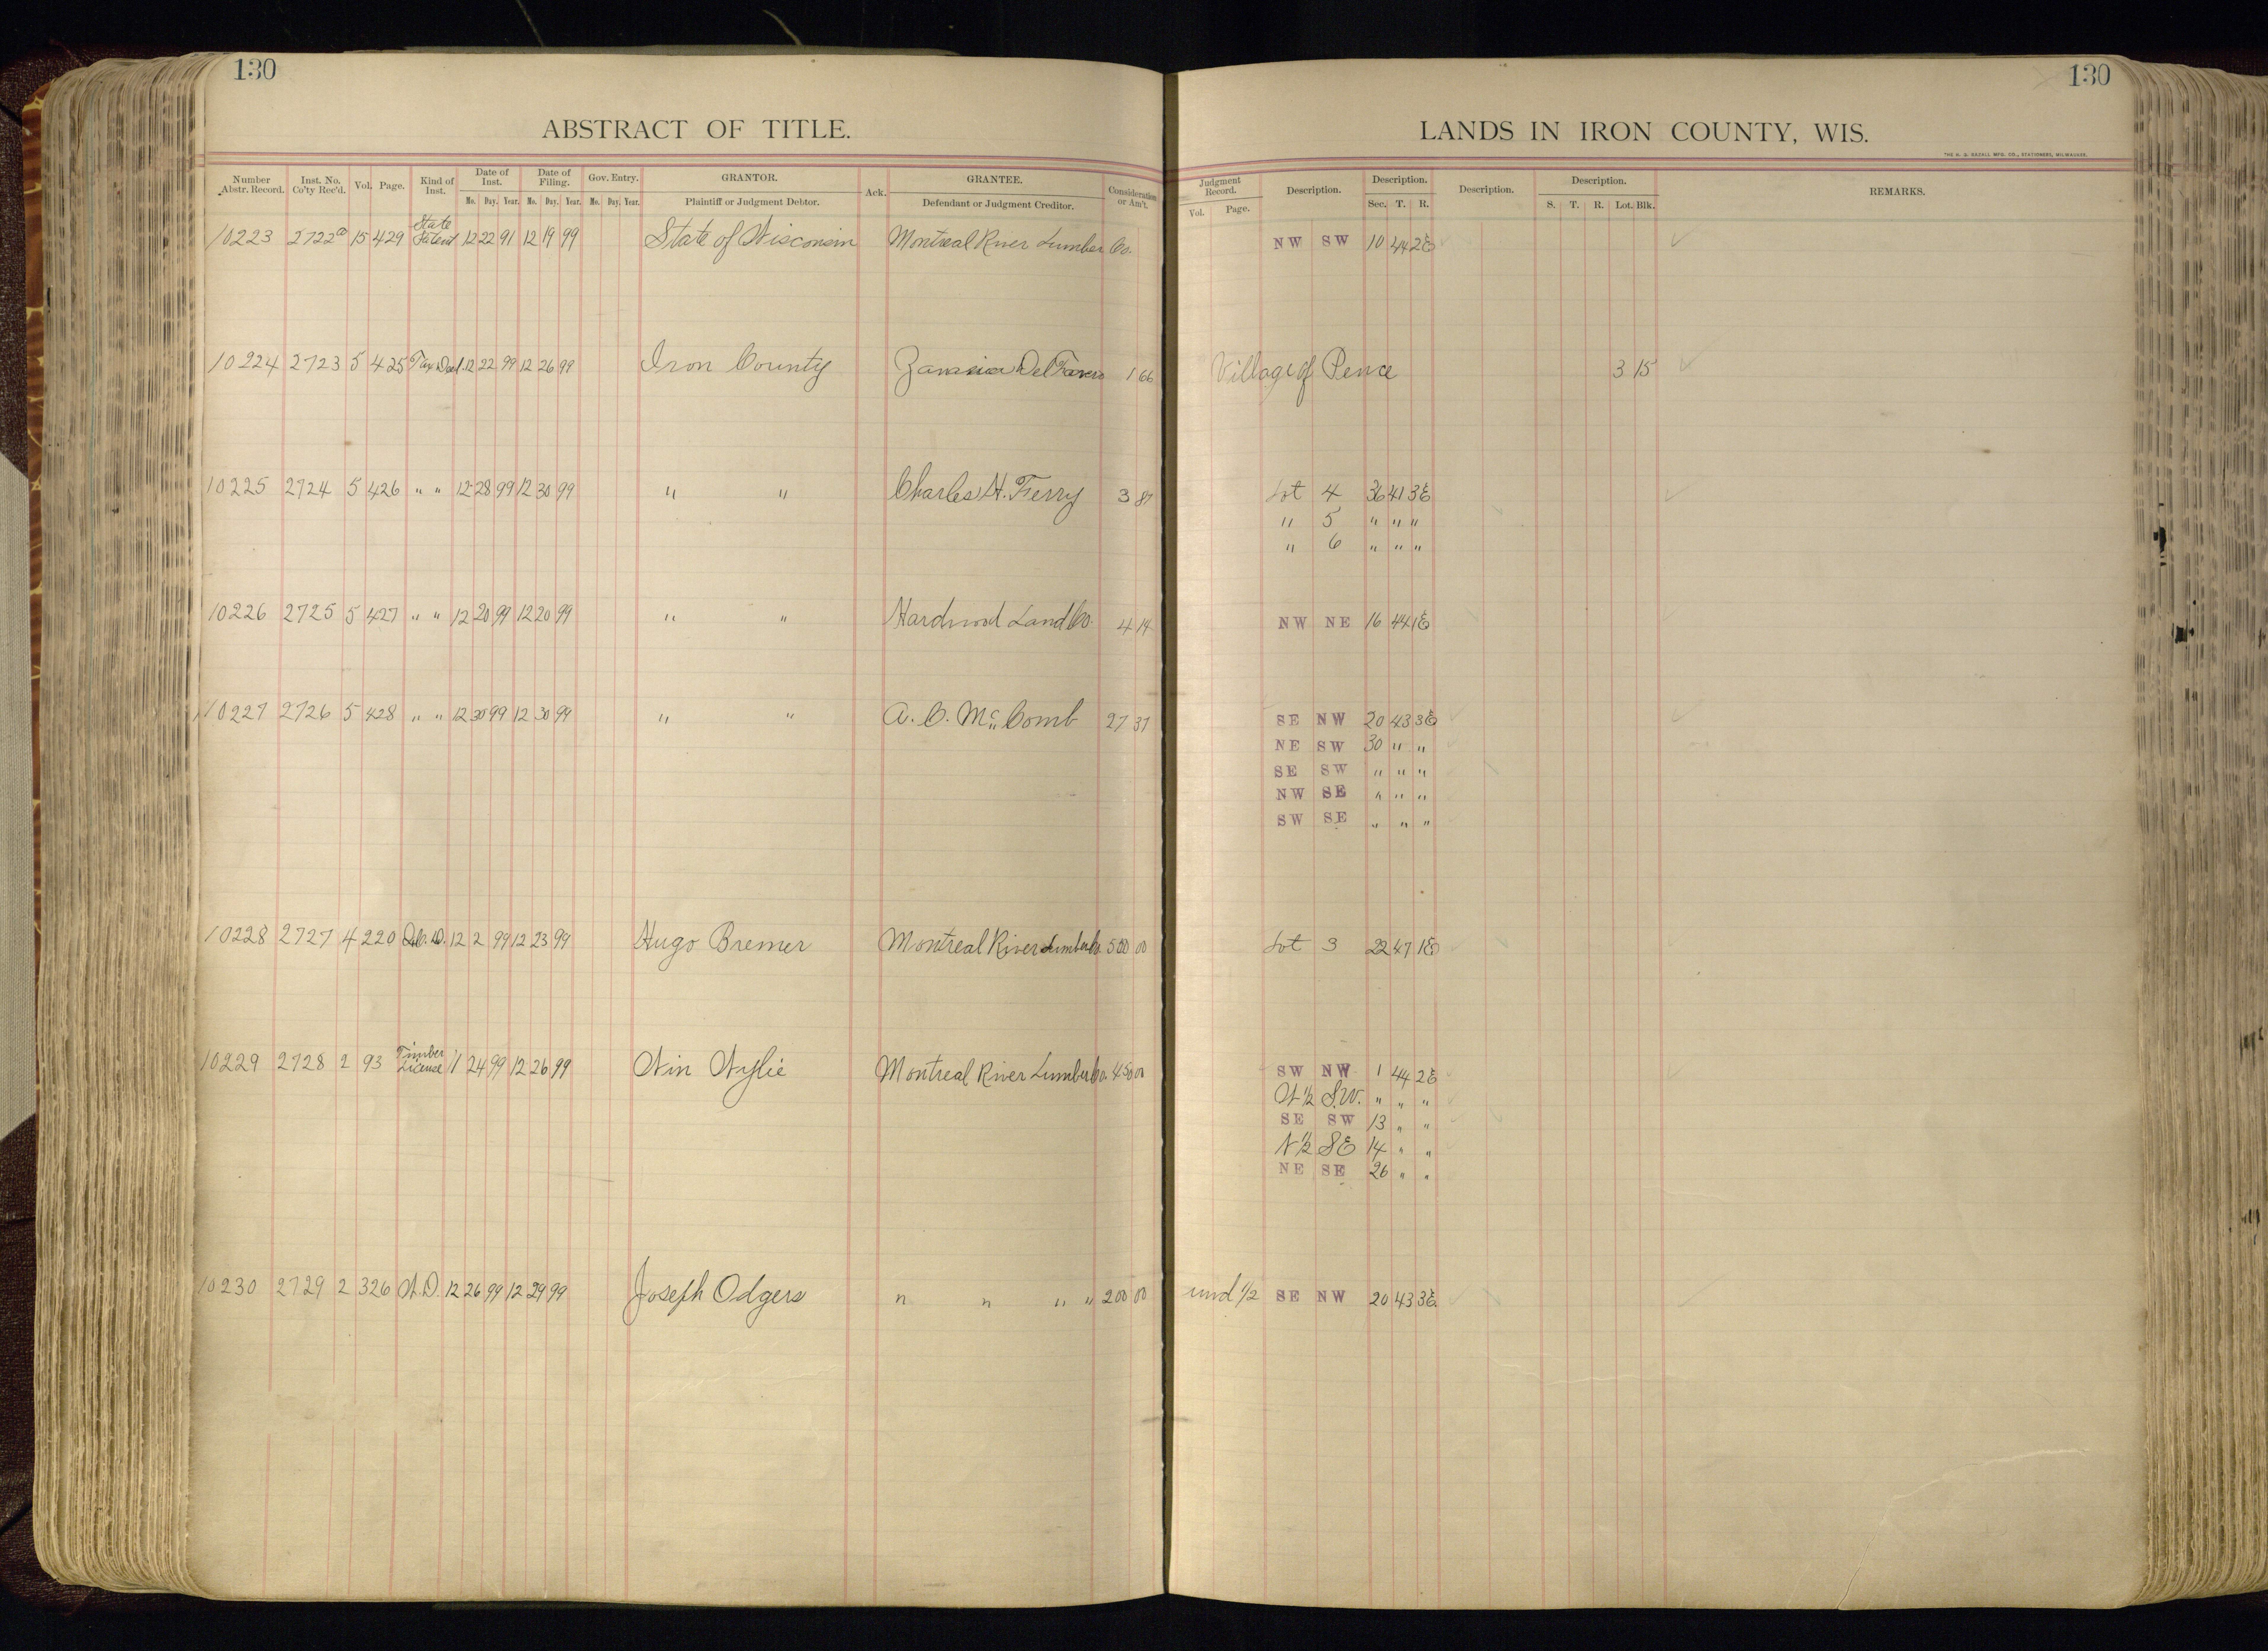 130
ABSTRACT OF TITLE.
Number Abstr. Record. Inst. No. Co'ty Rec'd. Vol. Page. Kind of Inst. Date of Inst. Mo. Day. Year. Date of Filing. Mo. Day. Year. Gov. Entry. Mo. Day. Year. GRANTOR. Plaintiff or Judgment Debtor. Ack. GRANTEE. Defendant or Judgment Creditor. Consideration or Am't.
10223 2722a 15 429 State Patent 12 22 91 12 19 99 State of Wisconsin Montreal River Lumber Co.
10224 2723 5 425 Tax Deed 12 22 99 12 26 99 Iron County 1 66
10225 2724 5 426 " " 12 28 99 12 30 99 " " Charles H. Ferry 3 87
10226 2725 5 427 " " 12 20 99 12 20 99 " " Hardwood Land Co. 4 14
10227 2726 5 428 " " 12 30 99 12 30 99 " " A. C. McComb 27 37
10228 2727 4 220 12 2 99 12 23 99 Hugo Bremer Montreal River Lumber Co. 500 00
10229 2728 2 93 Timber License 11 24 99 12 26 99 Win Wylie Montreal River Lumber Co. 450 00
10230 2729 2 326 W.D. 12 26 99 12 29 99 Joseph Odgers " " " " 200 00
130
LANDS IN IRON COUNTY, WIS.
Judgment Record. Vol. Page. Description. Description. Sec. T. R. Description. Description. S. T. R. Lot. Blk. REMARKS.
NW SW 10 44 2E
Village of Pence 3 15
Lot 4 36 41 3E
" 5 " " "
" 6 " " "
NW NE 16 44 1E
SE NW 20 43 3E
NE SW 30 " "
SE SW " " "
NW SE " " "
SW SE " " "
Lot 3 22 47 1E
SW NW 1 44 2E
W 1/2 S.W. " " "
SE SW 13 " "
N 1/2 SE 14 " "
NE SE 26 " "
und 1/2 SE NW 20 43 3E